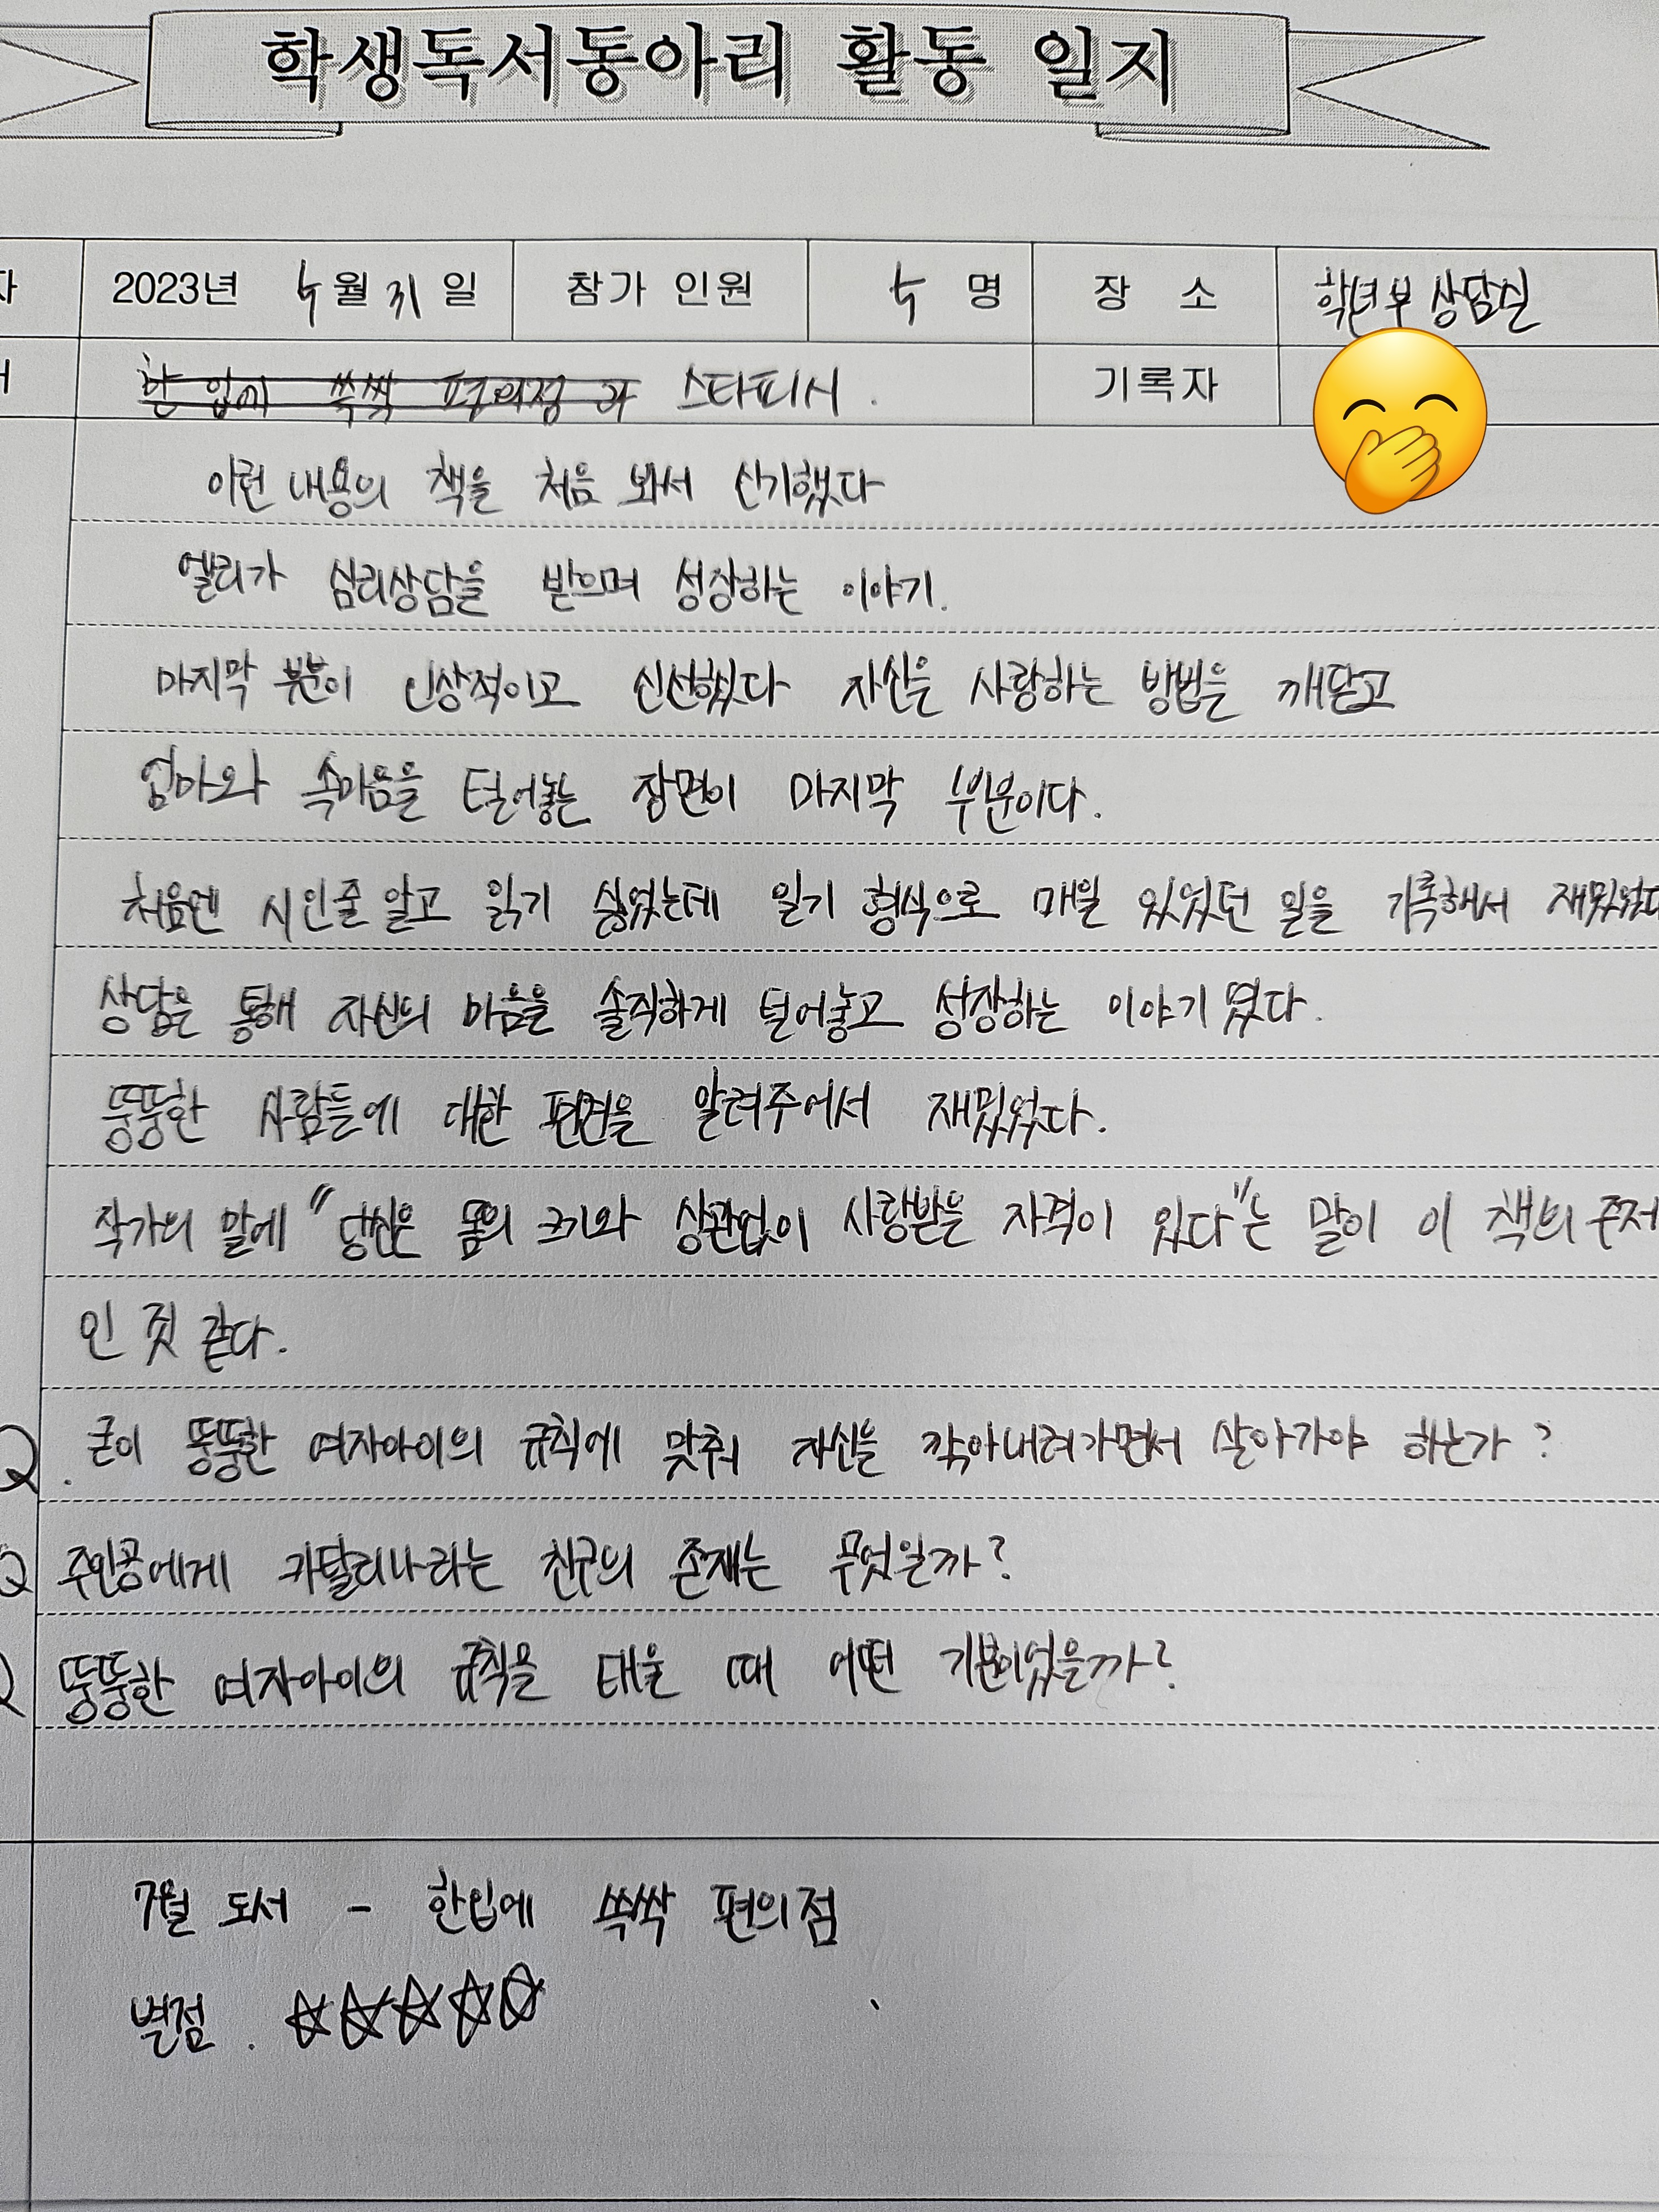 학생독서동아리 활동 일지
2023년 5월 31일 참가 인원 5 명 장 소 학년부 상담실
한 입에 쓱싹 편의점 스타피시. 기록자
이런 내용의 책을 처음 봐서 신기했다
엘리가 심리상담을 받으며 성장하는 이야기.
마지막 부분이 인상적이고 신선했다 자신을 사랑하는 방법을 깨닫고
엄마와 속마음을 털어놓는 장면이 마지막 부분이다.
처음엔 시인줄 알고 읽기 싫었는데 일기 형식으로 매일 있었던 일을 기록해서 재밌었다
상담을 통해 자신의 마음을 솔직하게 털어놓고 성장하는 이야기였다.
뚱뚱한 사람들에 대한 편견을 알려주어서 재밌었다.
작가의 말에 "당신은 몸의 크기와 상관없이 사랑받을 자격이 있다"는 말이 이 책의 주제
인 것 같다.
Q. 굳이 뚱뚱한 여자아이의 규칙에 맞춰 자신을 깎아내려가면서 살아가야 하는가?
Q 주인공에게 카탈리나라는 친구의 존재는 무엇일까?
Q 뚱뚱한 여자아이의 규칙을 태울 때 어떤 기분이었을까?
7월 도서 - 한입에 쓱싹 편의점
별점. ☆☆☆☆☆